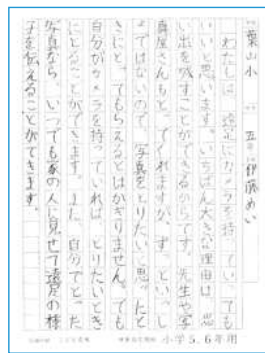 栗山小 五年 伊藤めい
わたしは、遠足にカメラを持っていっても
いいと思います。いちばん大きな理由は、思
い出を残すことができるからです。先生や写
真屋さんもとってくれますが、ずっといっし
ょではないので、写真をとりたいと思ったと
きにとってもらえるとはかぎりません。でも
自分がカメラを持っていれば、とりたいとき
にとることができます。また、自分でとった
写真なら、いつでも家の人に見せて遠足の様
子を伝えることができます。
小学5.6年用